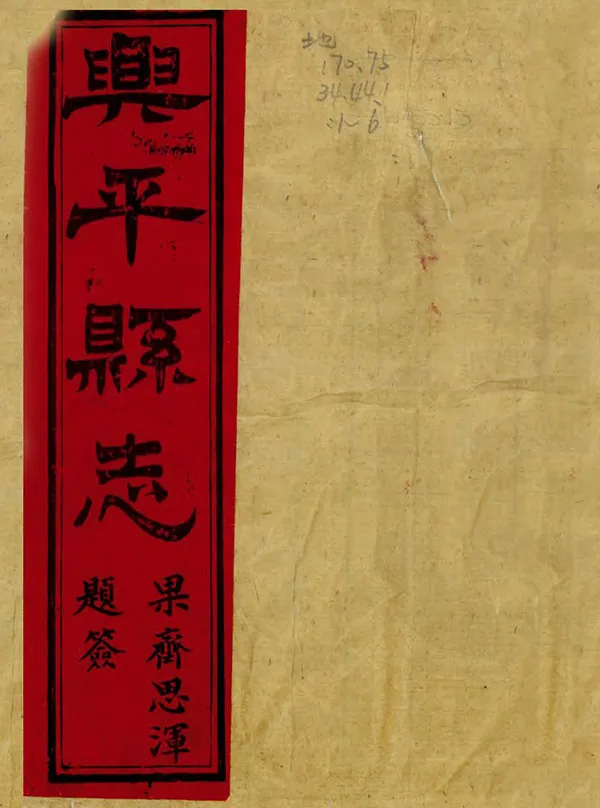 興平縣志
果齋思渾
題簽
地
170.75
3444.1
:1~6